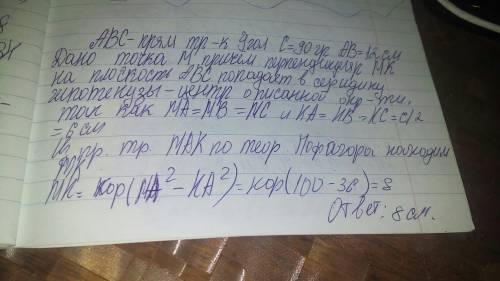 АВС-прям тр-к Угол С=90гр АВ=12см
Дано точка М причем перпендикуляр МК
на плоскость АВС попадает в середину
гипотенузы-центр описанной окр-ти,
так как МА=МВ=МС и КА=КВ=КС=с/2
=6см
Из пр. тр. МАК по теор. Пифагора находим
МК=кор(МА²-КА²)=кор(100-36)=8
Ответ: 8см.